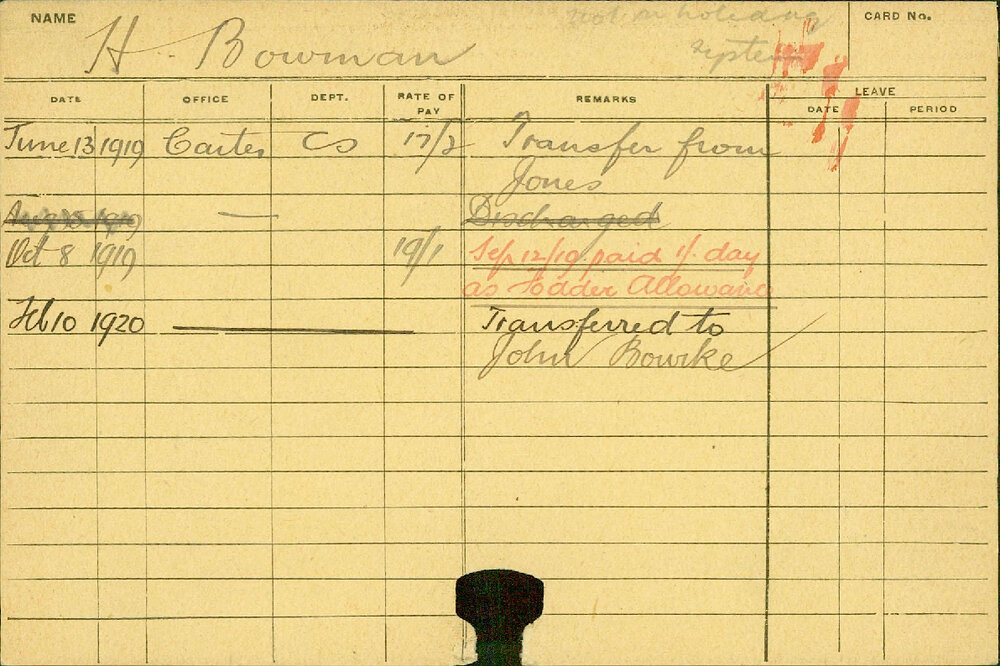 NAME H. Bowman not on holiday CARD No.
system
DATE OFFICE DEPT. RATE OF PAY REMARKS LEAVE
DATE PERIOD
June 13 1919 Carter CS 17/2 Transfer from
Jones
Aug 1919 — Discharged
Oct 8 1919 19/1 Sep 12/19 paid 1/- day
as Fodder Allowance
Feb 10 1920 Transferred to
John Bourke